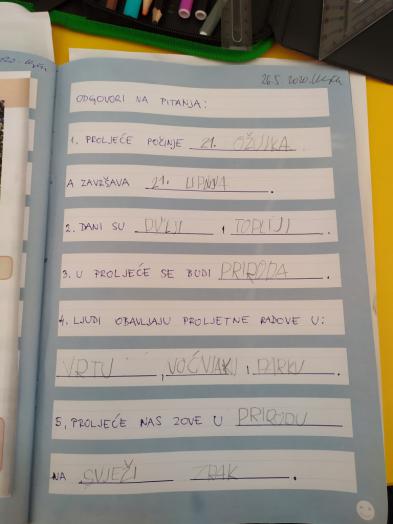 26.5.2020.
ODGOVORI NA PITANJA:
1. PROLJEĆE POČINJE 21. OŽUJKA
A ZAVRŠAVA 21. LIPNJA.
2. DANI SU DULJI I TOPLIJI.
3. U PROLJEĆE SE BUDI PRIRODA.
4. LJUDI OBAVLJAJU PROLJETNE RADOVE U:
VRTU, VOĆNJAKU I PARKU.
5. PROLJEĆE NAS ZOVE U PRIRODU
NA SVJEŽI ZRAK.